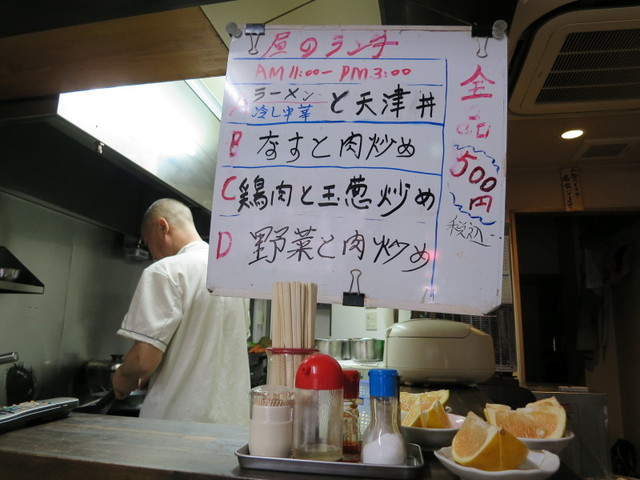 昼のランチ
AM 11:00- PM 3:00
A ラーメン 冷し中華 と天津丼
B なすと肉炒め
C 鶏肉と玉葱炒め
D 野菜と肉炒め
全品
500円
税込